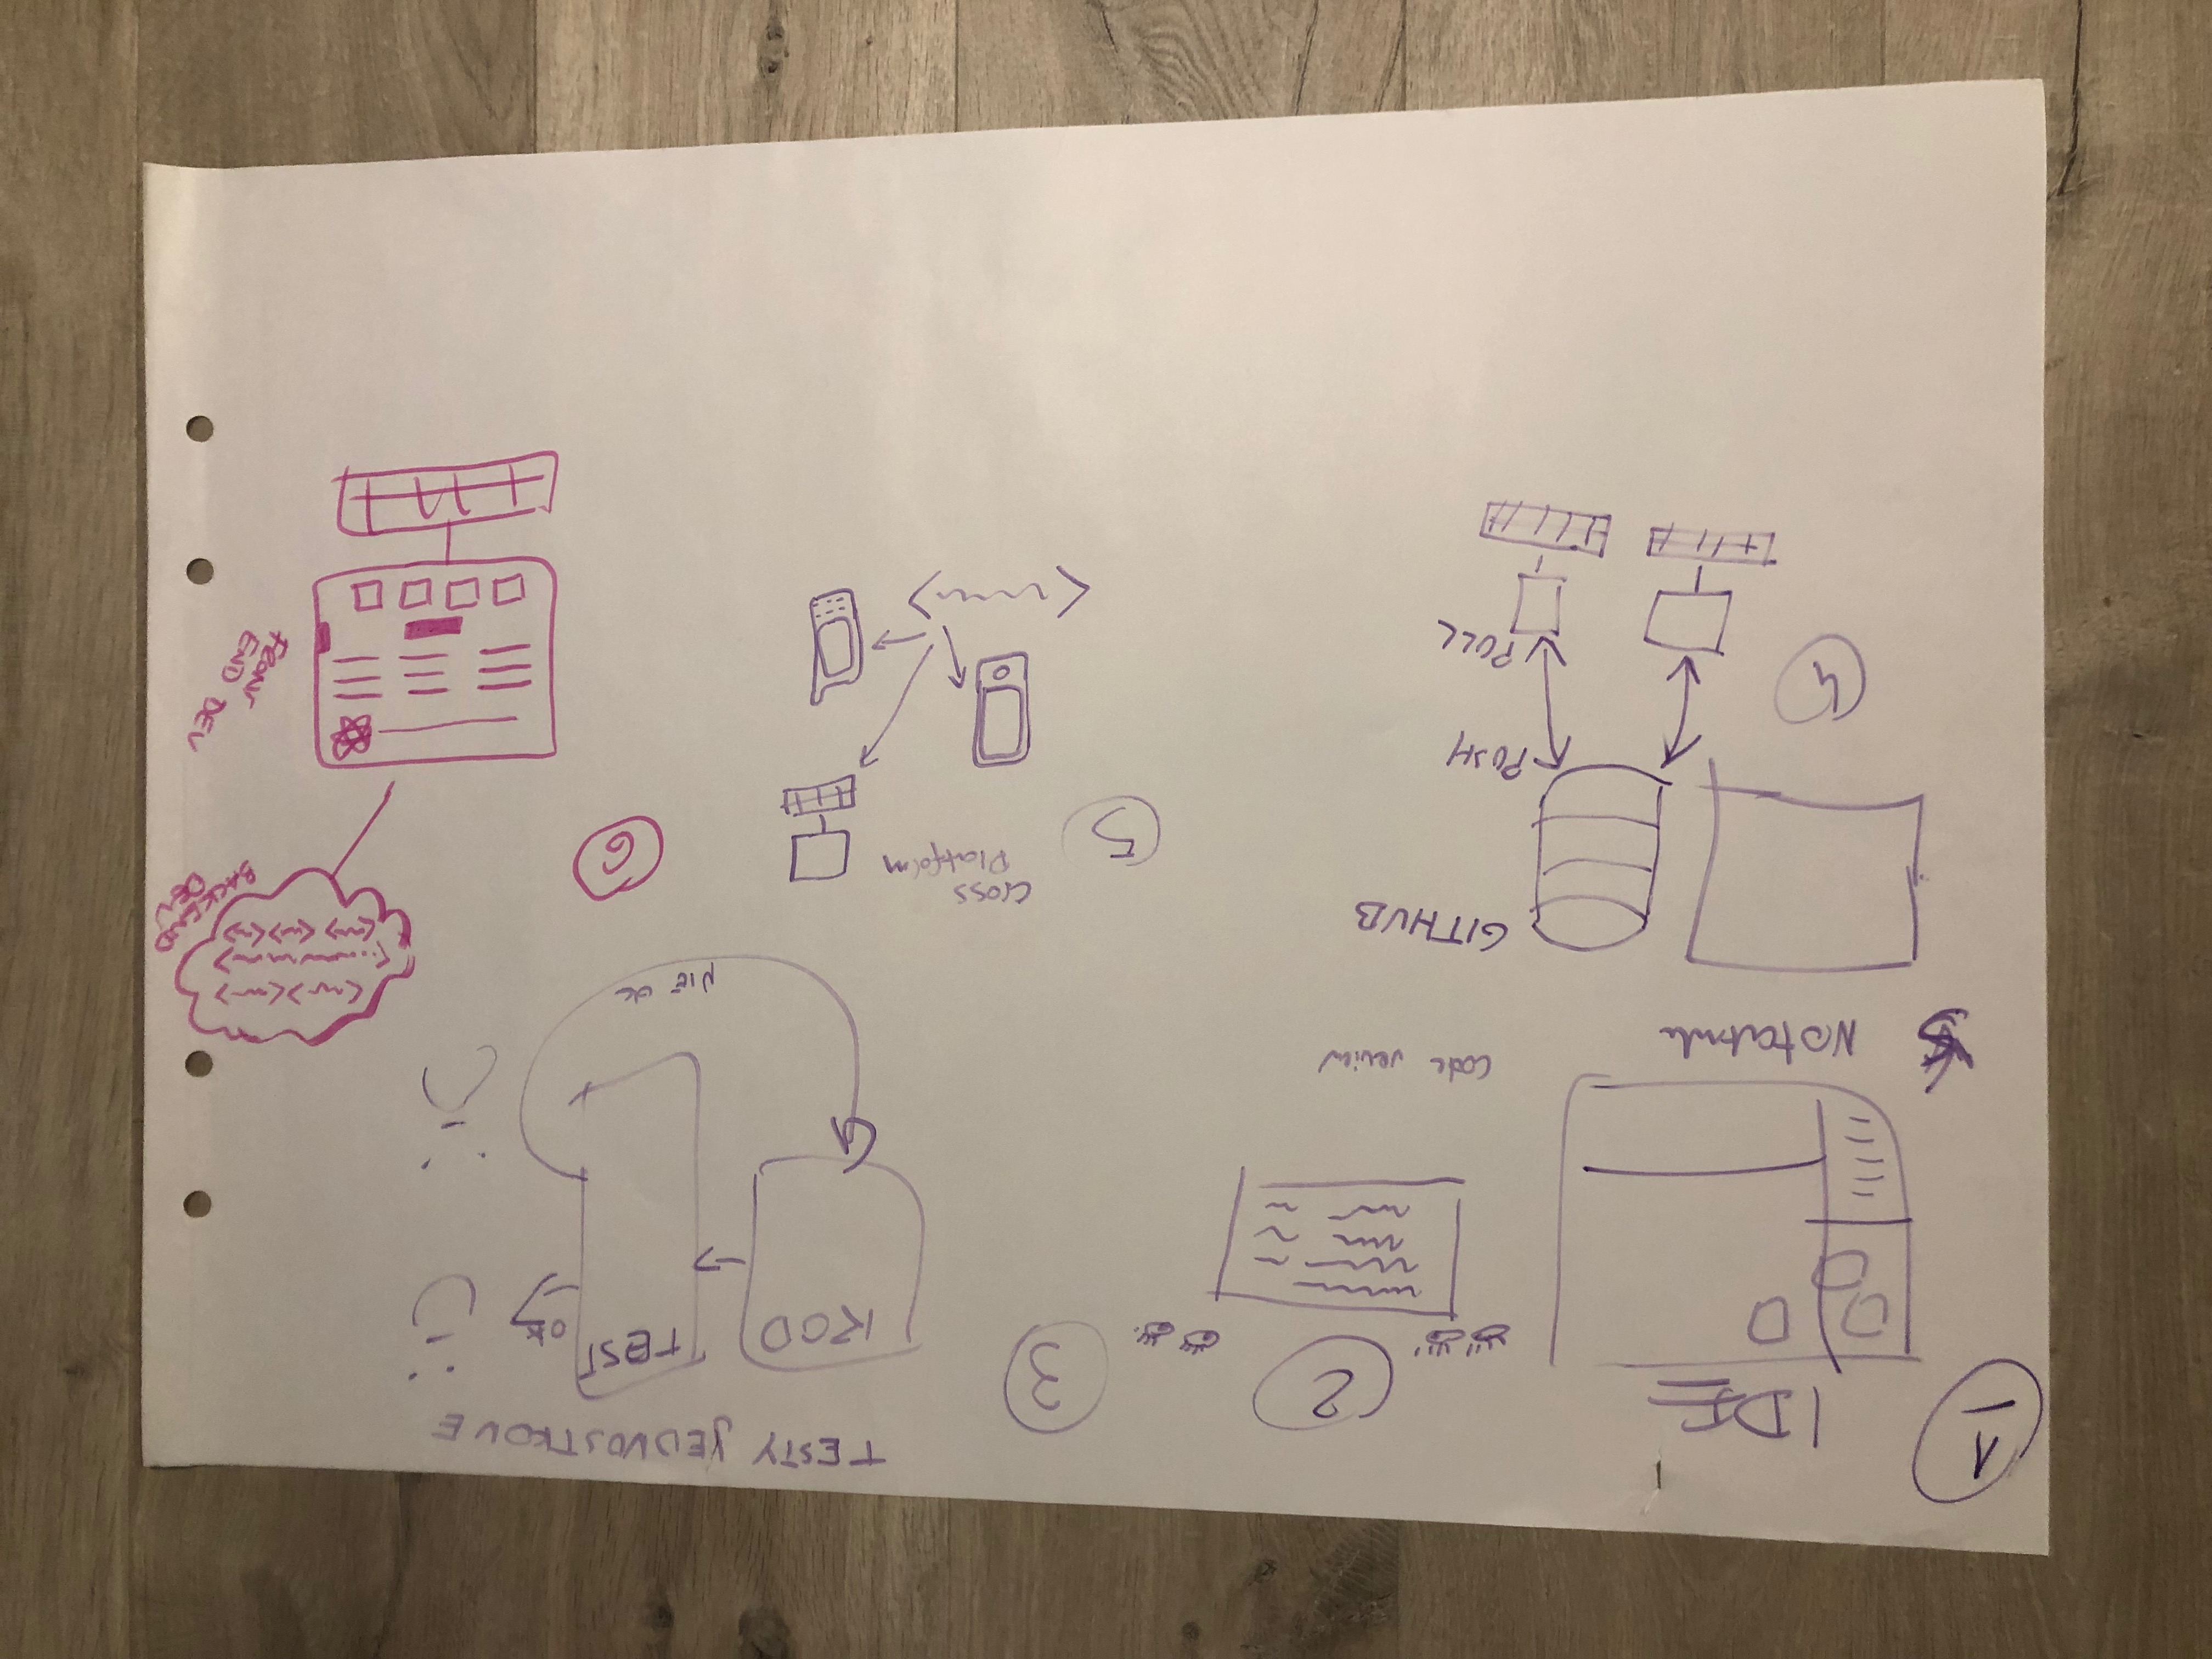 1
IDE
Notatnik
2
Code review
3
TESTY JEDNOSTKOWE
KOD
TEST
OK
NIE OK
4
GITHUB
PUSH
PULL
5
Cross
Platform
6
BACKEND
DEV
FRONT
END
DEV